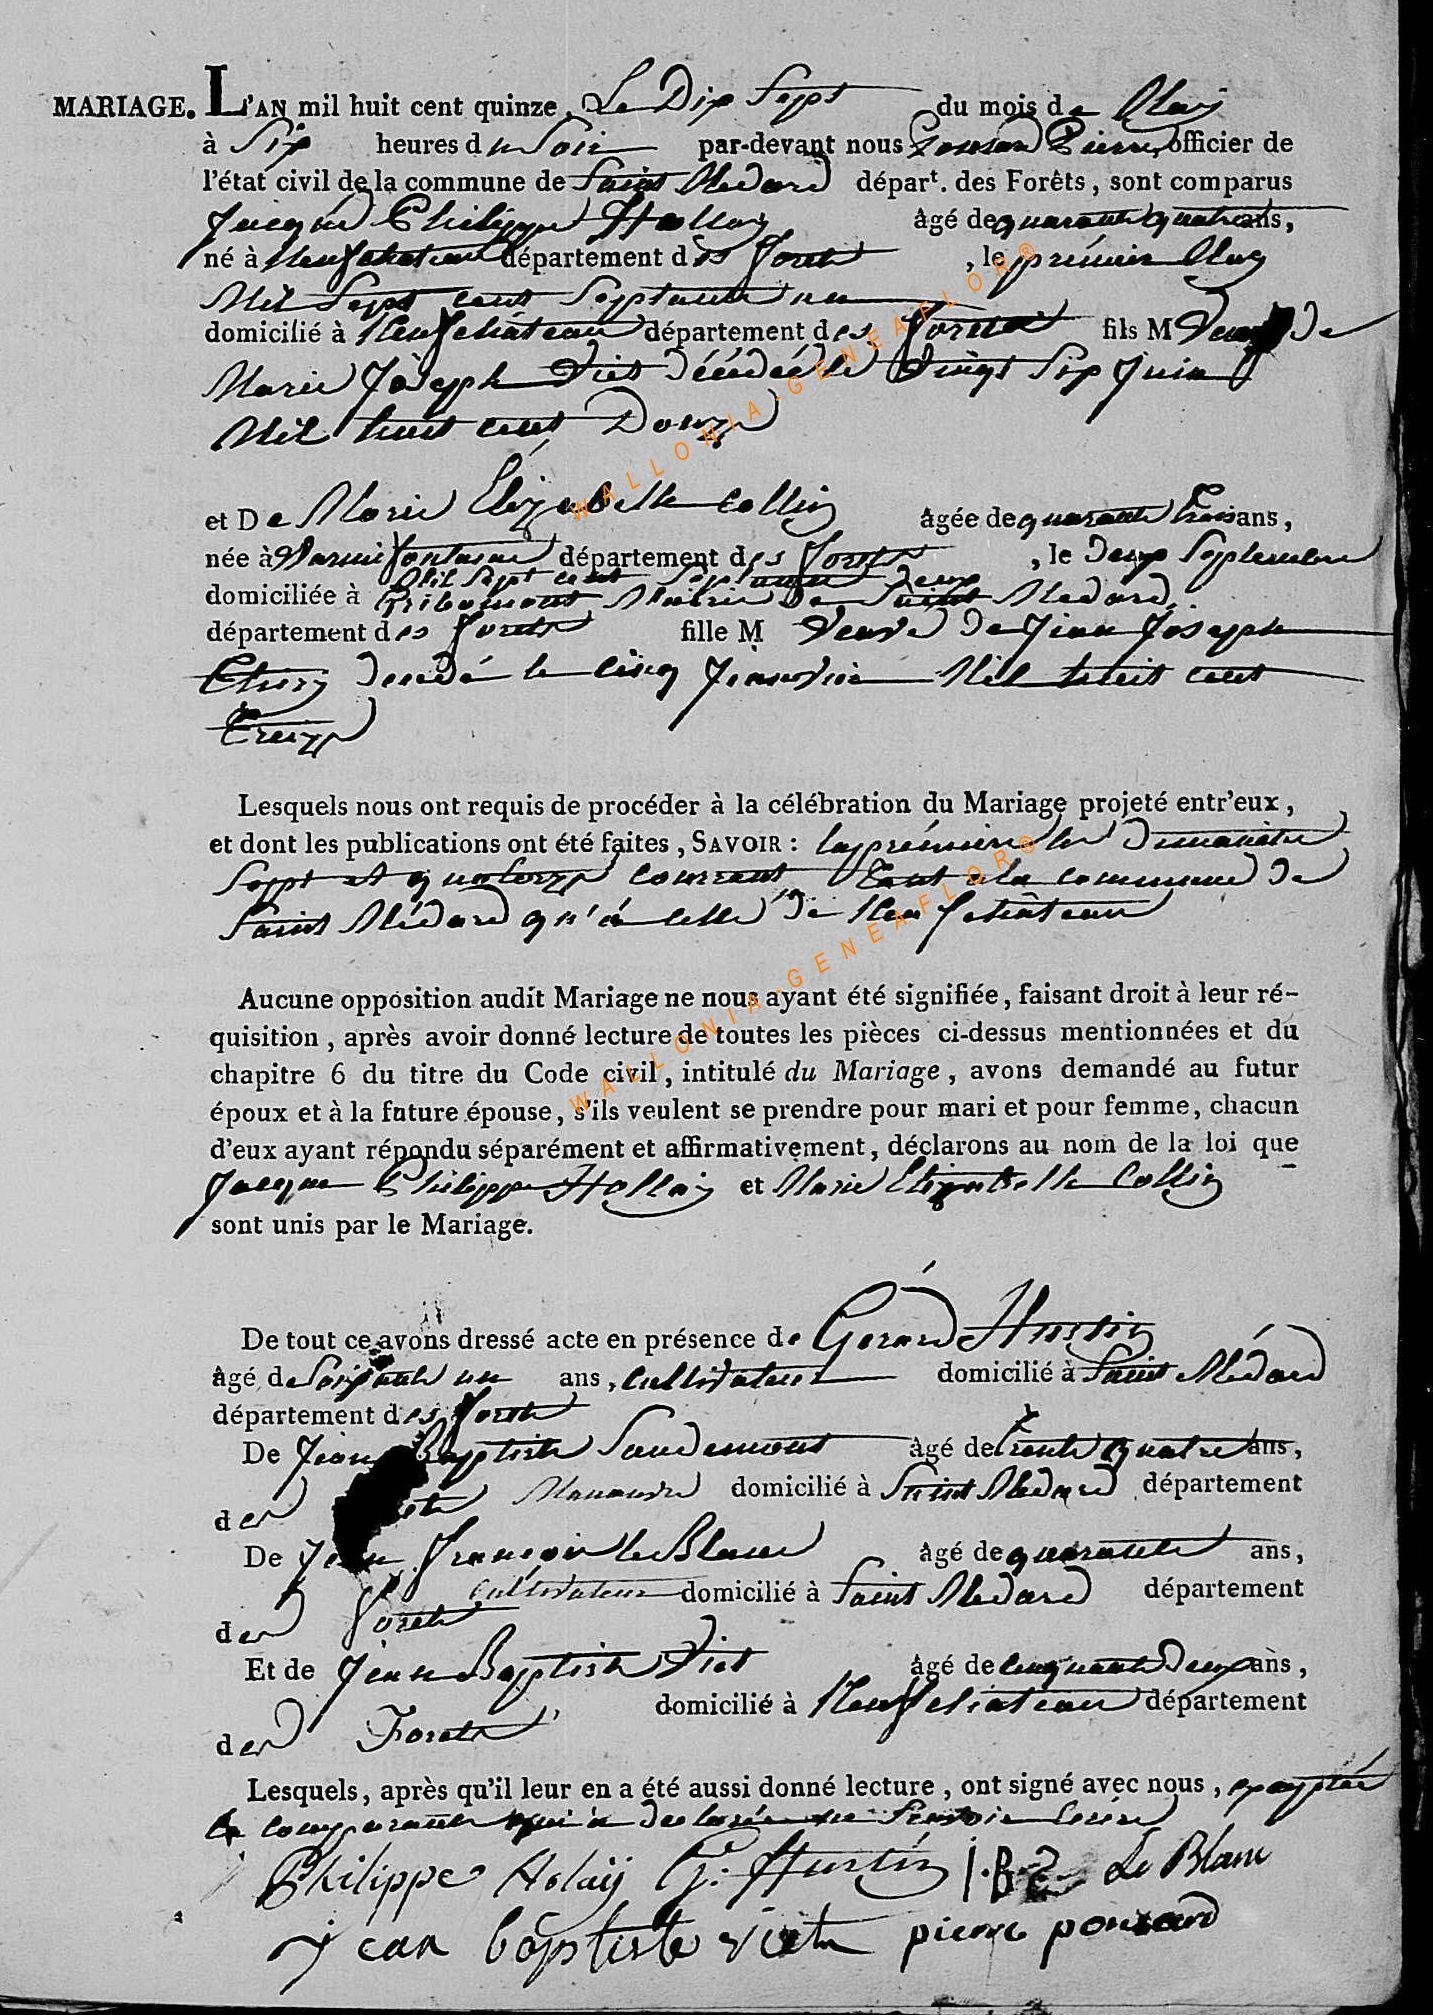 MARIAGE. L'AN mil huit cent quinze, Le Dix Sept du mois de May
à Six heures du Soir par-devant nous Ponsard Pierre, officier de
l'état civil de la commune de Saint Medard dépar^t. des Forêts, sont comparus
Jacque Philippe Hollay âgé de quarante quatre ans,
né à Neufchateau département des Forets, le prémier May
Mil Sept cent Septante un
domicilié à Neufchâteau département des Forets fils M Veuf de
Marie Joseph Viet décédée le Vingt Six Juin
Mil huit cent Douze
et De Marie Elizabelle Collin âgée de quarante trois ans,
née à Warmifontaine département des Forets, le Deux Septembre
Mil Sept cent Septante Deux
domiciliée à Pribomont Mairie De Saint Medard
département des Forets fille M Veuve De Jean Joseph
Thiry Decedé le Cinq Janvier Mil huit cent
Treize
Lesquels nous ont requis de procéder à la célébration du Mariage projeté entr'eux,
et dont les publications ont été faites, SAVOIR : la prémiere les Dimanches
Sept et quatorze courrant tant a la commune De
Saint Médard qu'à celle De Neufchâteau
Aucune opposition audit Mariage ne nous ayant été signifiée, faisant droit à leur ré-
quisition, après avoir donné lecture de toutes les pièces ci-dessus mentionnées et du
chapitre 6 du titre du Code civil, intitulé du Mariage, avons demandé au futur
époux et à la future épouse, s'ils veulent se prendre pour mari et pour femme, chacun
d'eux ayant répondu séparément et affirmativement, déclarons au nom de la loi que
Jacque Philippe Hollay et Marie Elizabelle Collin
sont unis par le Mariage.
De tout ce avons dressé acte en présence de Gérard Hustin
âgé de Soixante un ans, Cultivateur domicilié à Saint Médard
département des Forets
De Jean Baptiste Saudemont âgé de trente quatre ans,
Manoeuvre domicilié à Saint Medard département
des
De Jean François le Blanc âgé de quarante ans,
Cultivateur domicilié à Saint Medard département
des Forets
Et de Jean Baptiste Viet âgé de cinquante Deux ans,
domicilié à Neufchateau département
des Forets
Lesquels, après qu'il leur en a été aussi donné lecture, ont signé avec nous, exceptée
la comparante qui a Declarée ne Scavoir écrire
Philippe Holaÿ G: Hustin J.B.S Le Blanc
jean baptiste viet pierre ponsard
WALLONIA-GENEAFLOR®
WALLONIA-GENEAFLOR®